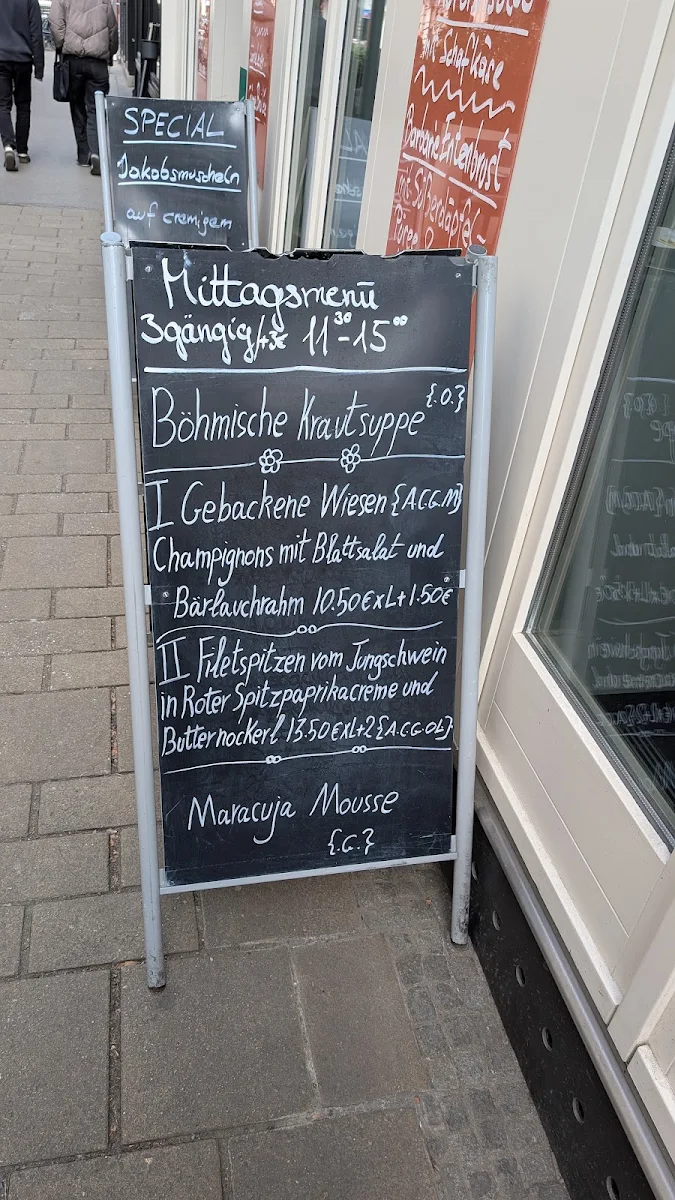 SPECIAL
Jakobsmuscheln
auf cremigem
mit Schafkäse
Barbarie Entenbrust
mit Süßerdäpfel-
Püree
Mittagsmenü
3gängig/+3€ 11³⁰-15⁰⁰
Böhmische Krautsuppe {.O.}
I Gebackene Wiesen {A.C.G.M}
Champignons mit Blattsalat und
Bärlauchrahm 10.50€xL+1.50€
II Filetspitzen vom Jungschwein
in Roter Spitzpaprikacreme und
Butternockerl 13.50€xL+2{A.C.G.O.L}
Maracuja Mousse
{.G.}